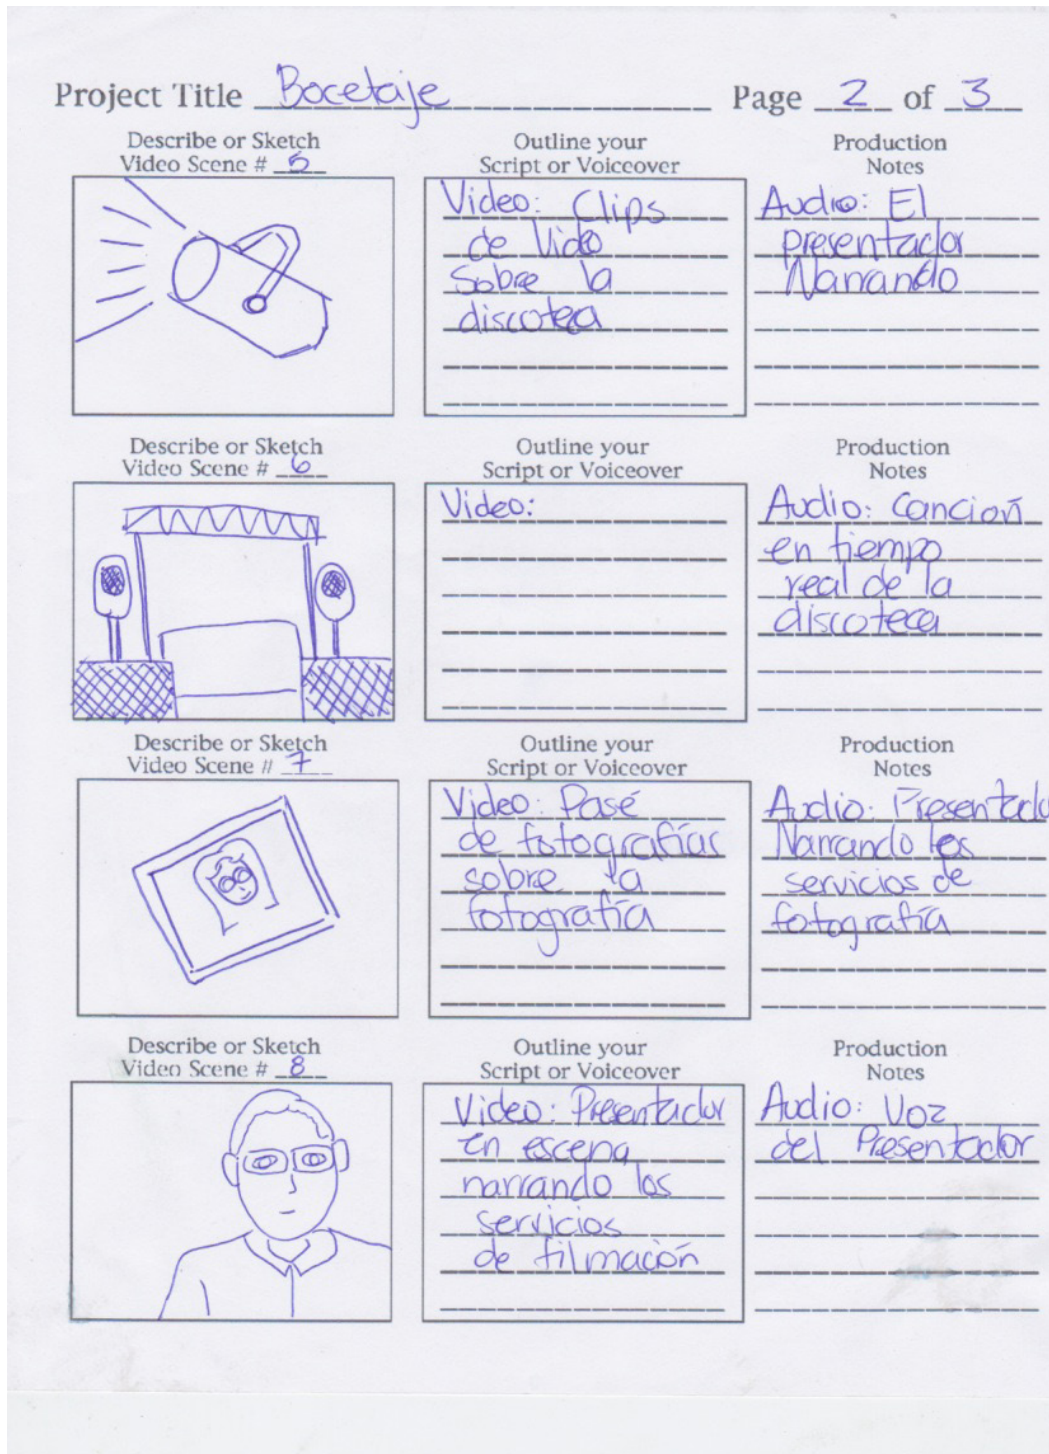 Project Title Bocetaje Page 2 of 3
Describe or Sketch
Video Scene # 5
Outline your
Script or Voiceover
Production
Notes
Video: Clips
de Video
Sobre la
discoteca
Audio: El
presentador
Narrando
Describe or Sketch
Video Scene # 6
Outline your
Script or Voiceover
Production
Notes
Video:
Audio: Canción
en tiempo
real de la
discoteca
Describe or Sketch
Video Scene # 7
Outline your
Script or Voiceover
Production
Notes
Video: Pasé
de fotografías
sobre la
fotografía
Audio: Presentado
Narrando los
servicios de
fotografía
Describe or Sketch
Video Scene # 8
Outline your
Script or Voiceover
Production
Notes
Video: Presentador
en escena
narrando los
servicios
de filmación
Audio: Voz
del Presentador